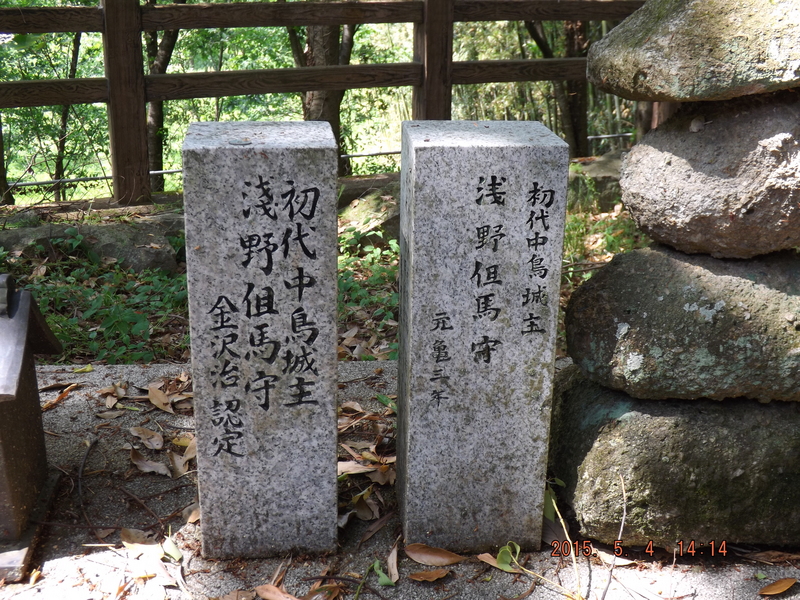 初代中鳥城主
淺野但馬守
金沢治 認定
初代中鳥城主
浅野但馬守
元亀三年
2015. 5 4 14:14